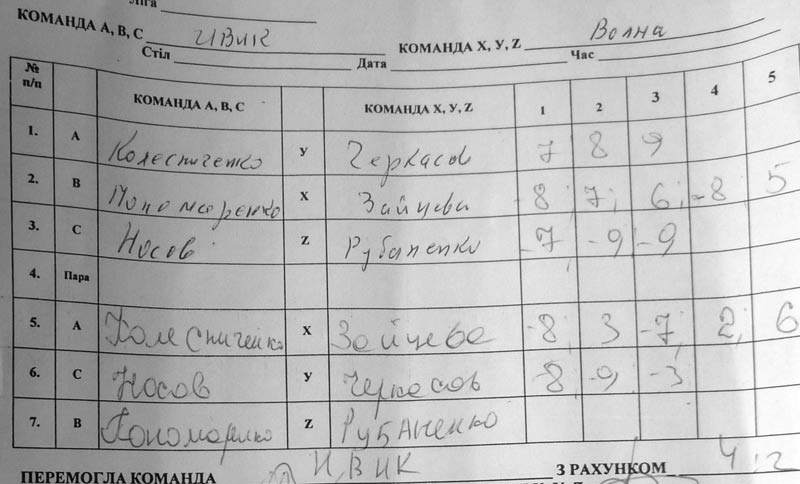 Ліга
КОМАНДА А, В, С ИВИК КОМАНДА Х, У, Z Волна
Стіл Дата Час
№ п/п КОМАНДА А, В, С КОМАНДА Х, У, Z 1 2 3 4 5
1. А Колесниченко У Черкасов 7 8 9
2. В Пономаренко Х Зайцева -8; 7; 6; -8; 5
3. С Носов Z Рубаненко -7 -9 -9
4. Пара
5. А Колесниченко Х Зайцева -8; 3 -7; 2; 6
6. С Носов У Черкасов -8; -9; -3
7. В Пономаренко Z Рубаненко
ПЕРЕМОГЛА КОМАНДА ИВИК З РАХУНКОМ 4:2